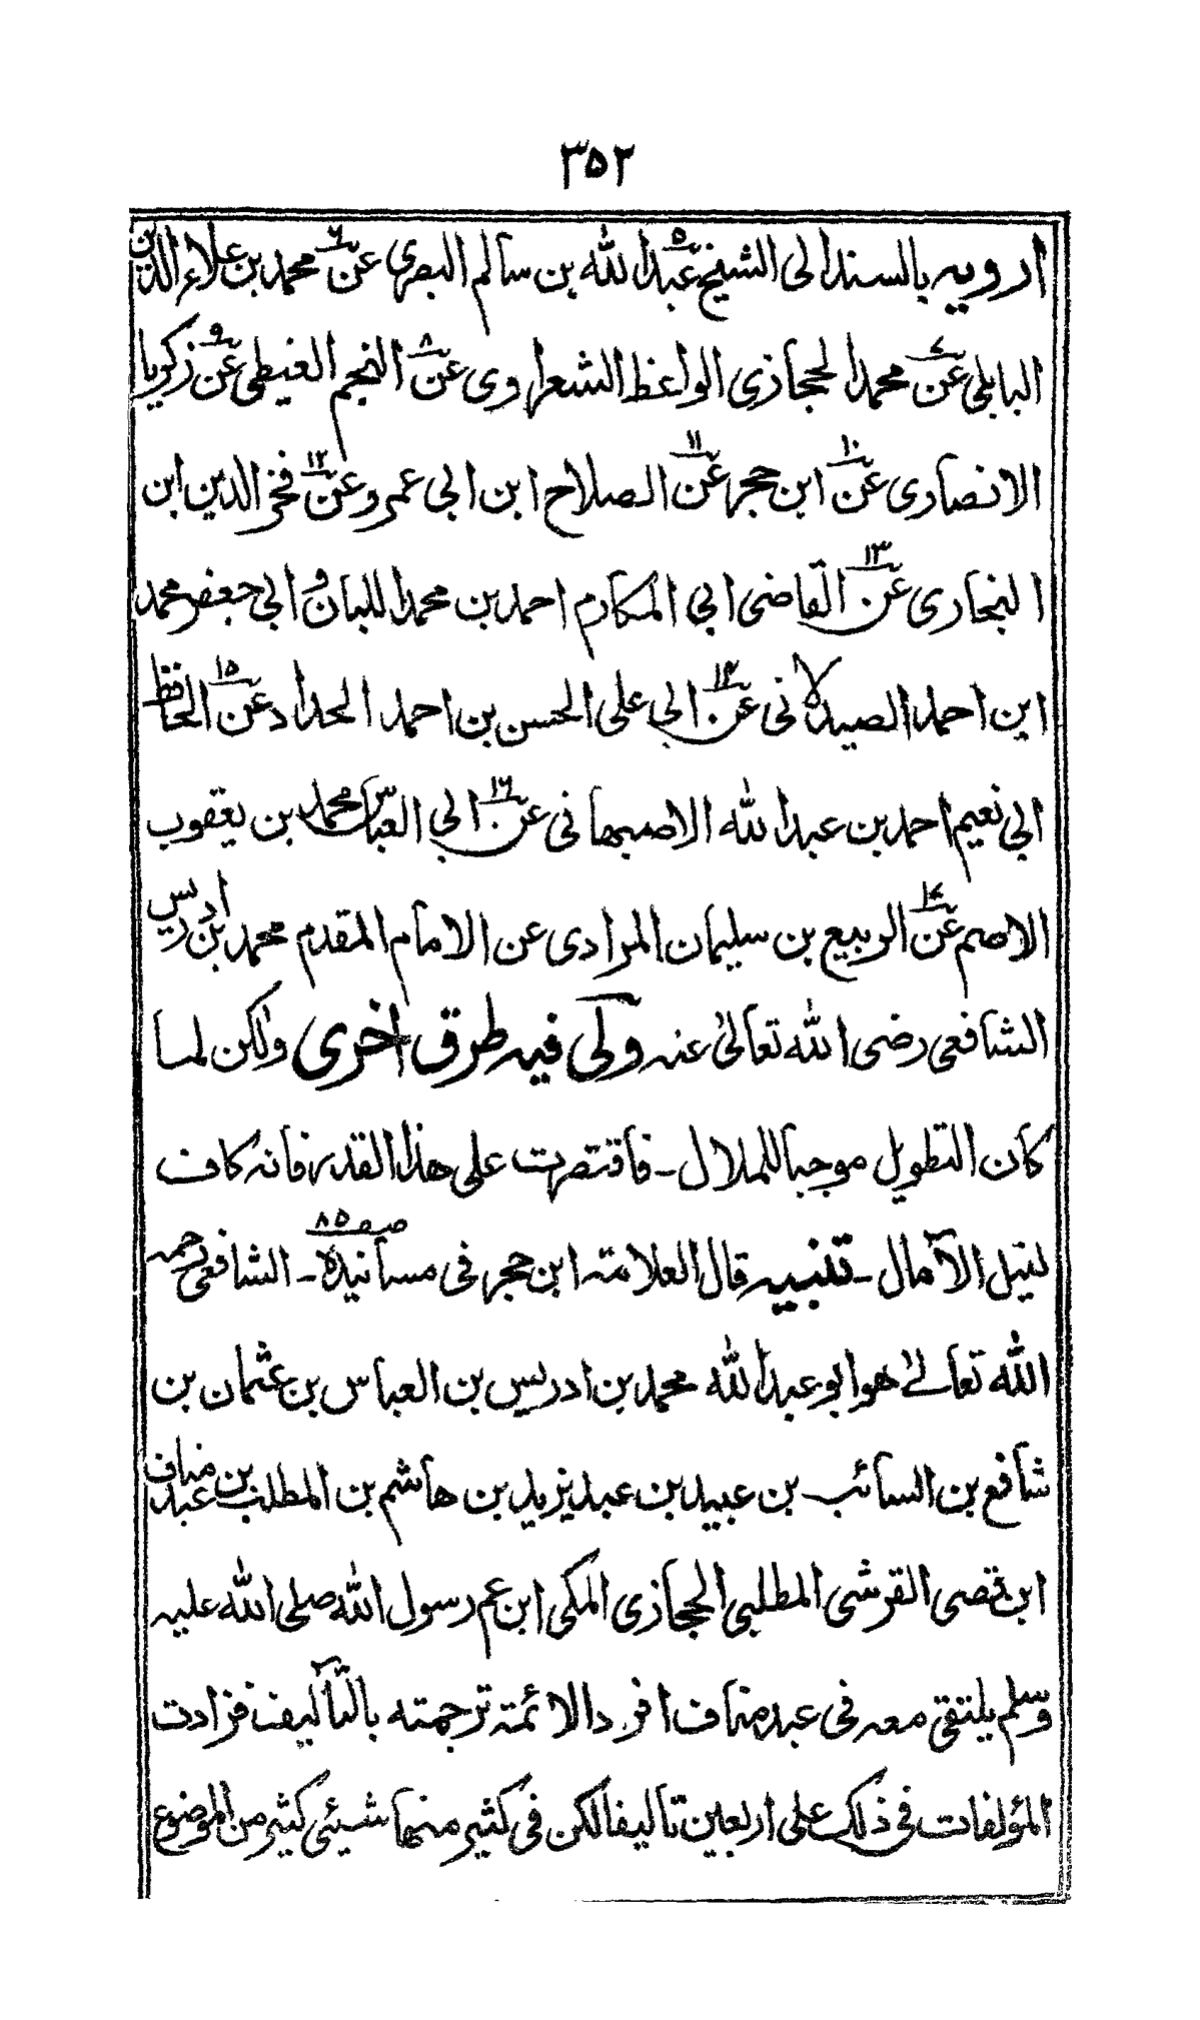 ٣٥٢
ارويه بالسند الى الشيخ عبد الله بن سالم البصرى عن محمد بن علاء الدين
البابلى عن محمد الحجازى الواعظ الشعراوى عن النجم الغيطى عن زكريا
الانصارى عن ابن حجر عن الصلاح ابن ابى عمر وعن فخر الدين ابن
البخارى عن القاضى ابي المكارم احمد بن محمد اللبان و ابى جعفر محمد
ابن احمد الصيدلانى عن ابي على الحسن بن احمد الحداد عن الحافظ
ابي نعيم احمد بن عبد الله الاصبهانى عن ابي العباس محمد بن يعقوب
الاصم عن الربيع بن سليمان المرادى عن الامام المقدم محمد بن ادريس
الشافعى رضى الله تعالىٰ عنه ولى فيه طرق اخرى ولكن لما
كان التطويل موجبا للملال ـ فاقتصرت على هذا القدر فانه كاف
لنيل الآمال ـ تنبيه قال العلامة ابن حجر فى مسانيده صـ ٨٥ ـ الشافعى رحمه
الله تعالىٰ هو ابو عبد الله محمد بن ادريس بن العباس بن عثمان بن
شافع بن السائب بن عبيد بن عبد يزيد بن هاشم بن المطلب بن عبد مناف
ابن قصى القرشى المطلبى الحجازى المكى ابن عم رسول الله صلى الله عليه
وسلم يلتقى معه فى عبد مناف افرد الائمة ترجمته بالتآليف فزادت
المؤلفات فى ذلك على اربعين تاليفا لكن فى كثير منها شيئى كثير من الموضوع